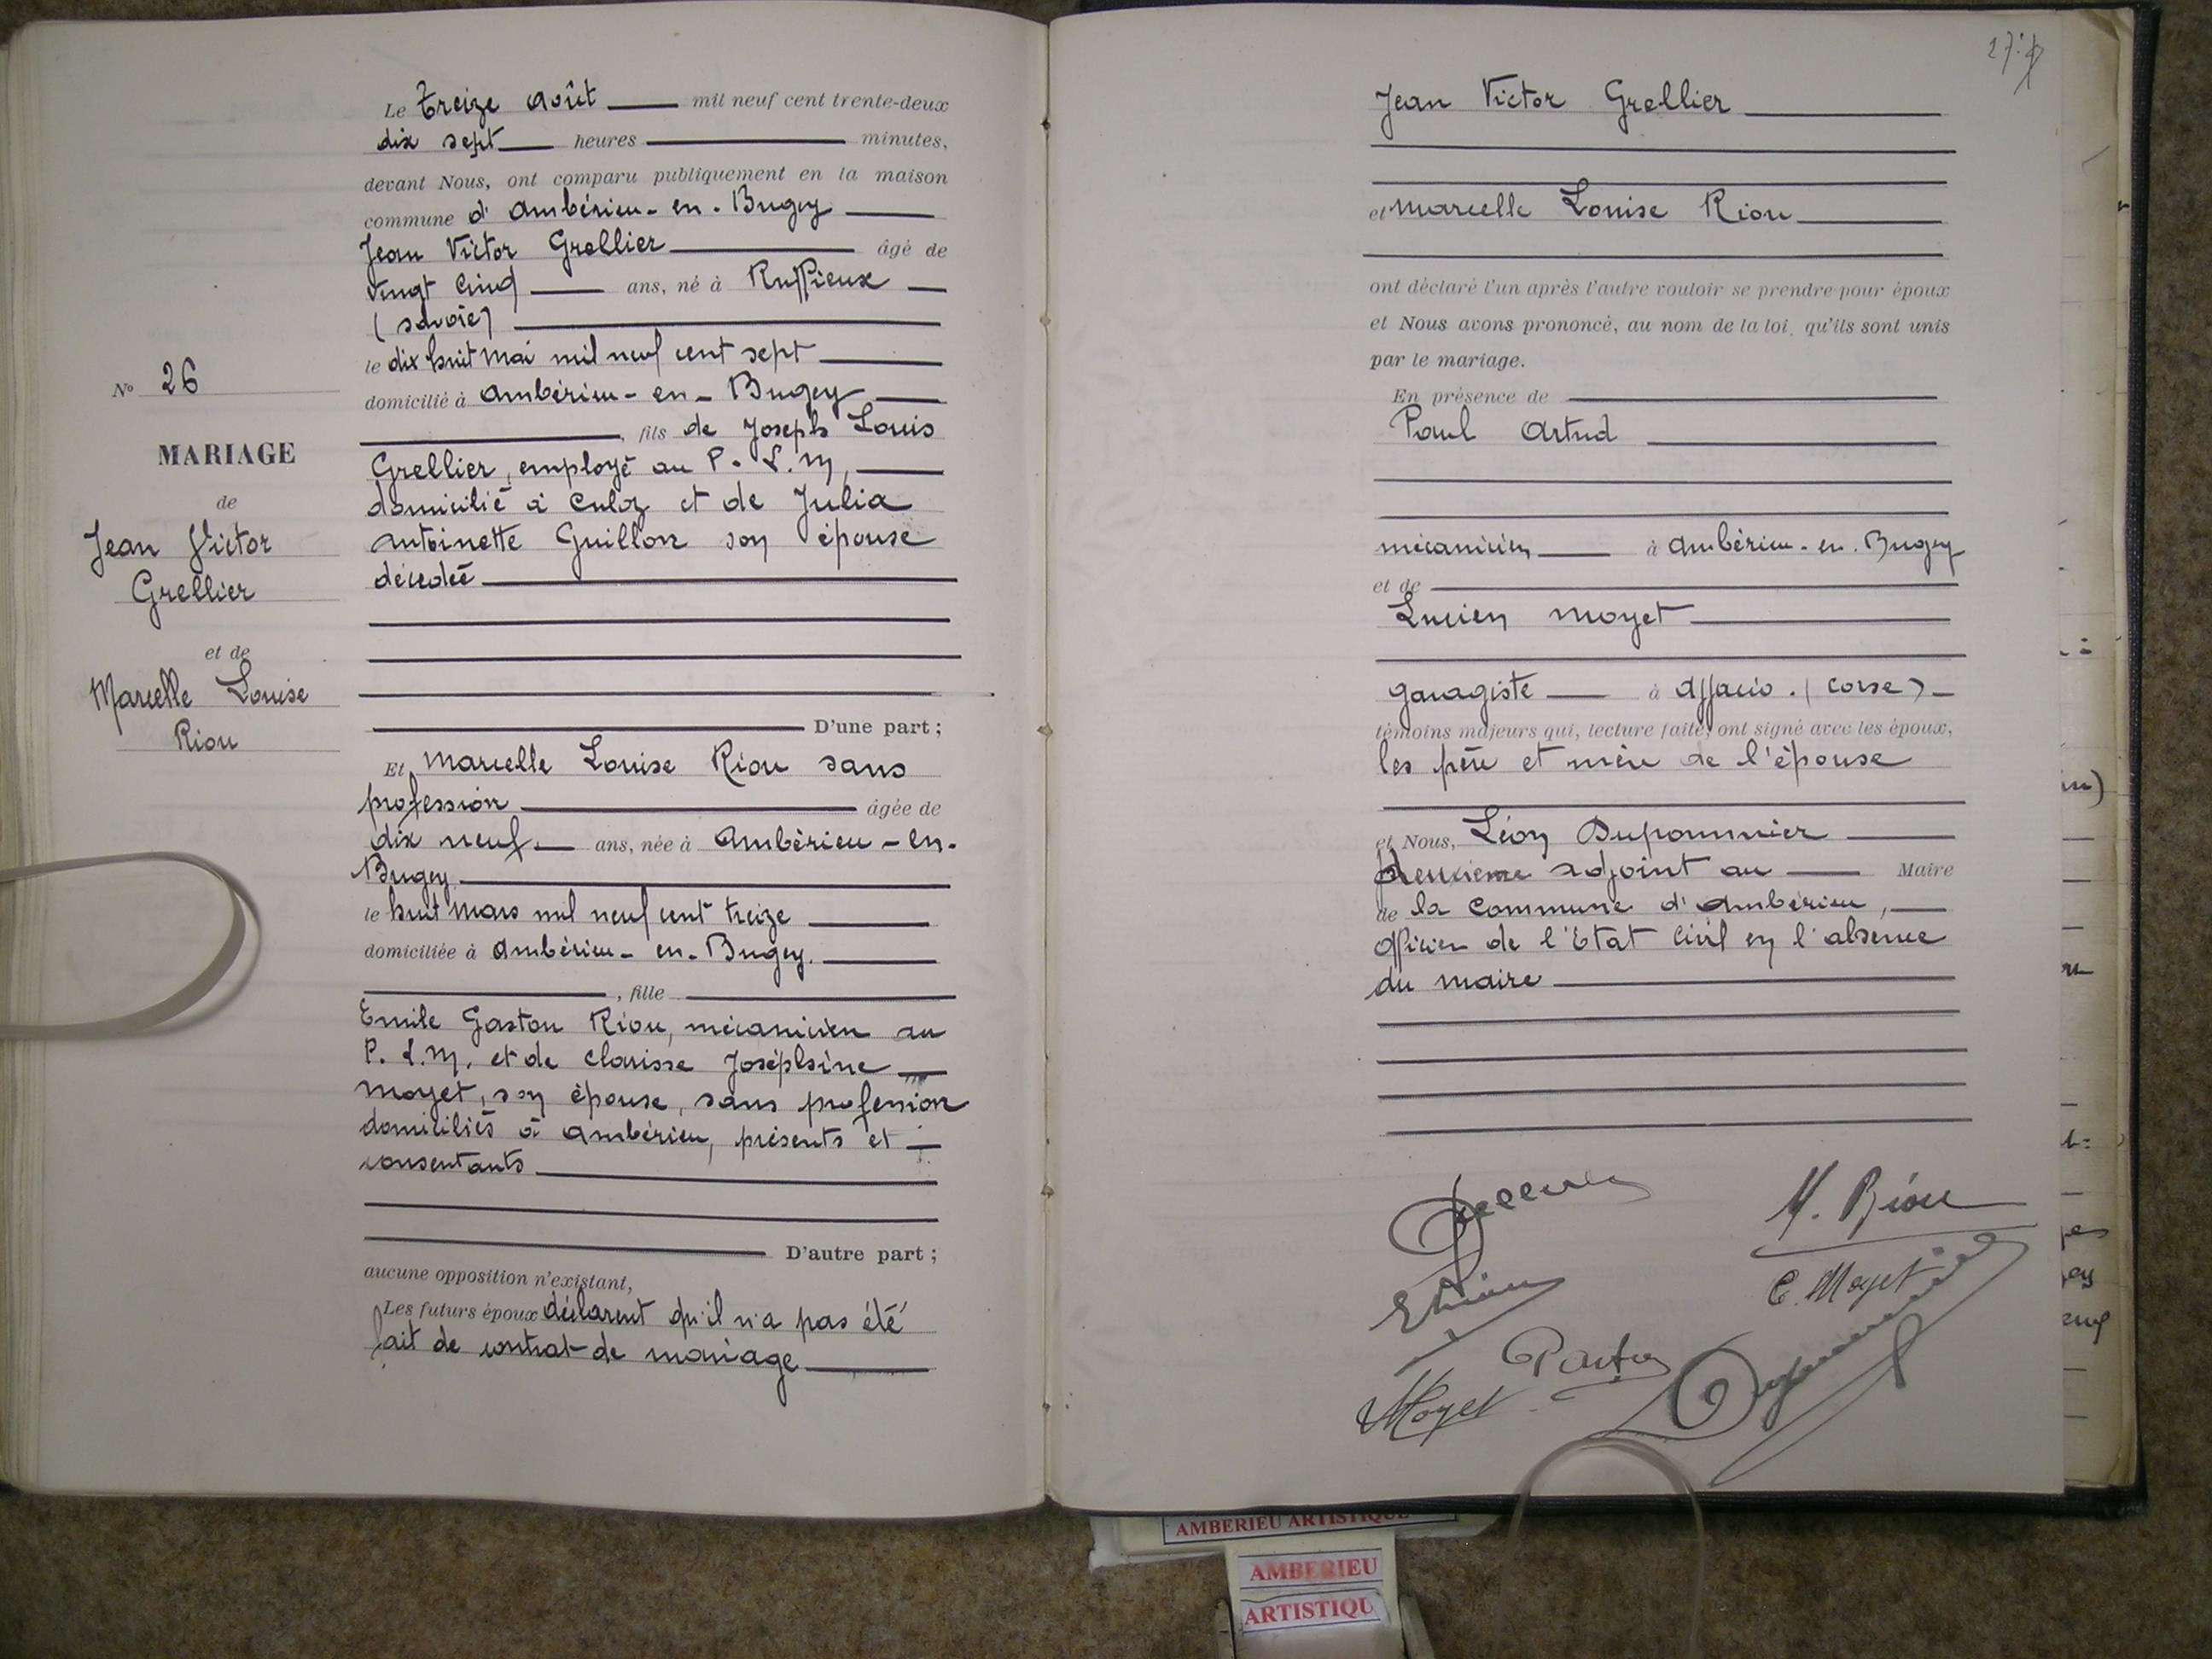 N° 26
MARIAGE
de
Jean Victor
Grellier
et de
Marcelle Louise
Riou
Le treize août mil neuf cent trente-deux
dix sept heures minutes,
devant Nous, ont comparu publiquement en la maison
commune d'Ambérieu-en-Bugey
Jean Victor Grellier âgé de
vingt cinq ans, né à Ruffieux
(Savoie)
le dix huit mai mil neuf cent sept
domicilié à Ambérieu-en-Bugey
, fils de Joseph Louis
Grellier, employé au P.L.M,
domicilié à Culoz et de Julia
Antoinette Guillon son épouse
décédée
D'une part ;
Et Marcelle Louise Riou sans
profession âgée de
dix neuf ans, née à Ambérieu-en-
Bugey
le huit mars mil neuf cent treize
domiciliée à Ambérieu-en-Bugey.
, fille
Emile Gaston Riou, mécanicien au
P.L.M. et de Clarisse Joséphine
Moyet, son épouse, sans profession
domiciliés à Ambérieu, présents et
consentants
D'autre part ;
aucune opposition n'existant,
Les futurs époux déclarent qu'il n'a pas été
fait de contrat de mariage
Jean Victor Grellier
et Marcelle Louise Riou
ont déclaré l'un après l'autre vouloir se prendre pour époux
et Nous avons prononcé, au nom de la loi, qu'ils sont unis
par le mariage.
En présence de
Paul Artud
mécanicien à Ambérieu-en-Bugey
et de
Lucien Moyet
garagiste à Ajjacio. (Corse)
témoins majeurs qui, lecture faite, ont signé avec les époux,
les père et mère de l'épouse
et Nous, Léon Dupommier
deuxième adjoint au Maire
de la commune d'Ambérieu,
officier de l'Etat Civil en l'absence
du maire
M. Riou
C. Moyet
Moyet
AMBERIEU ARTISTIQUE
AMBERIEU
ARTISTIQU